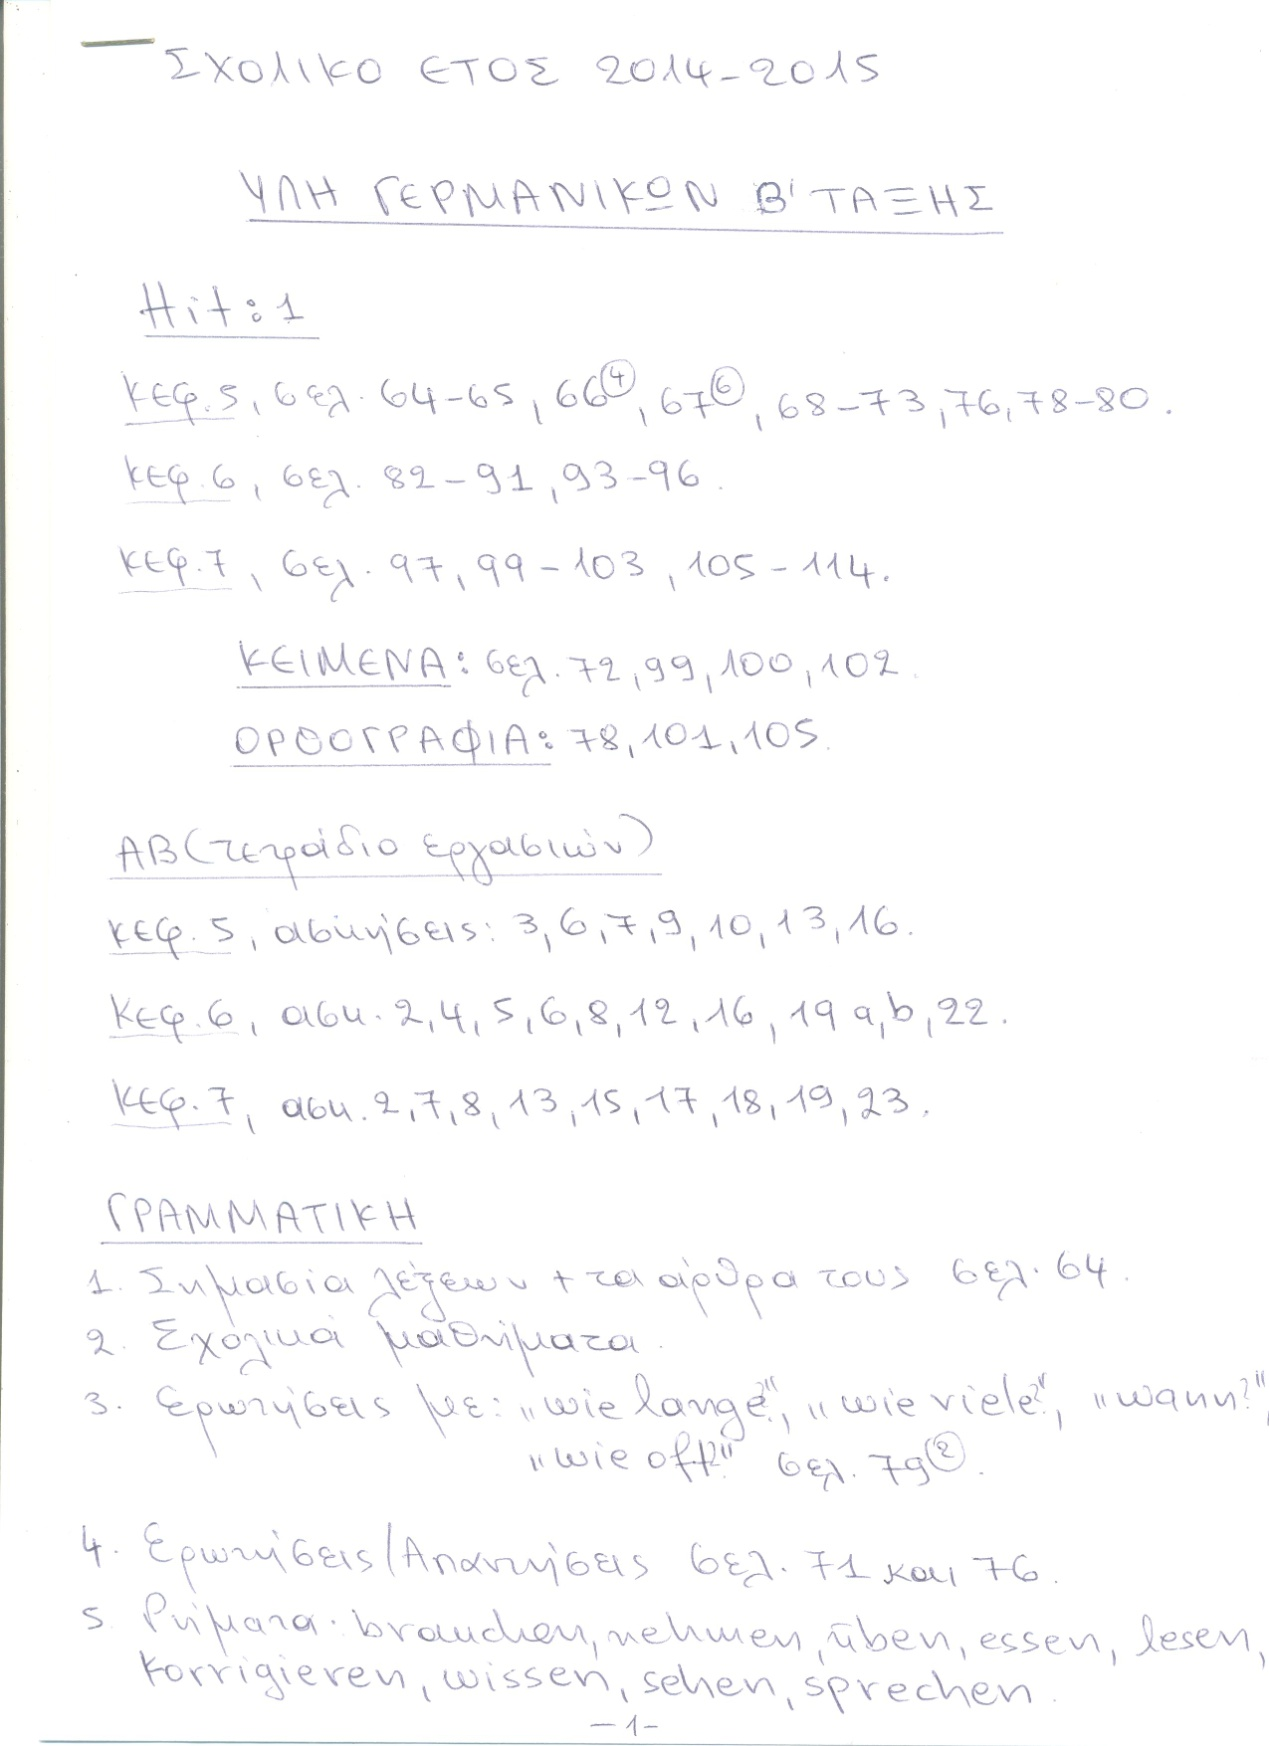 ΣΧΟΛΙΚΟ ΕΤΟΣ 2014-2015
ΥΛΗ ΓΕΡΜΑΝΙΚΩΝ Β' ΤΑΞΗΣ
Hit: 1
Κεφ. 5, σελ. 64-65, 66④, 67⑥, 68-73, 76, 78-80.
Κεφ. 6, σελ. 82-91, 93-96.
Κεφ. 7, σελ. 97, 99-103, 105-114.
ΚΕΙΜΕΝΑ: σελ. 72, 99, 100, 102.
ΟΡΘΟΓΡΑΦΙΑ: 78, 101, 105.
ΑΒ (τετράδιο εργασιών)
Κεφ. 5, ασκήσεις: 3, 6, 7, 9, 10, 13, 16.
Κεφ. 6, ασκ. 2, 4, 5, 6, 8, 12, 16, 19 a, b, 22.
Κεφ. 7, ασκ. 2, 7, 8, 13, 15, 17, 18, 19, 23.
ΓΡΑΜΜΑΤΙΚΗ
1. Σημασία λέξεων + τα άρθρα τους σελ. 64.
2. Σχολικά μαθήματα.
3. Ερωτήσεις με: „wie lange?", „wie viele?", „wann?",
„wie oft?" σελ. 79②.
4. Ερωτήσεις/Απαντήσεις σελ. 71 και 76.
5. Ρήματα: brauchen, nehmen, üben, essen, lesen,
korrigieren, wissen, sehen, sprechen.
-1-